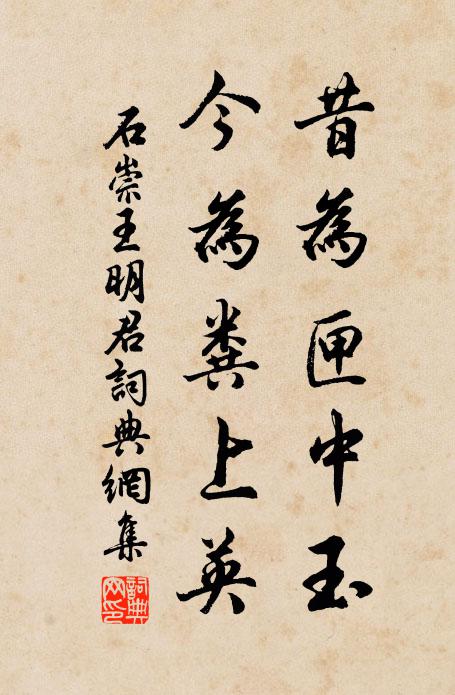 昔為匣中玉
今為糞上英
石崇王明君詞典網集
詞典網印